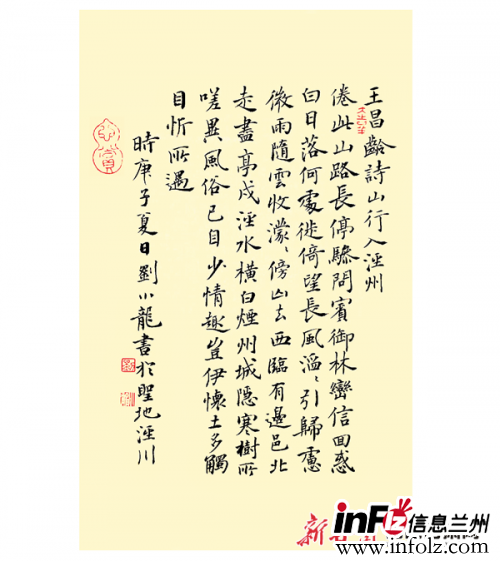 王昌齡詩山行入涇州
倦此山路長停驂問賓御林巒信回惑
白日落何處徙倚望長風滔、引歸慮
微雨隨雲收濛、傍山去西臨有邊邑北
走盡亭戍涇水橫白煙州城隱寒樹所
嗟異風俗已自少情趣豈伊懷土多觸
目忻所遇
時庚子夏日劉小龍書於聖地涇川
新
inFLZ信息兰州
www.infolz.com